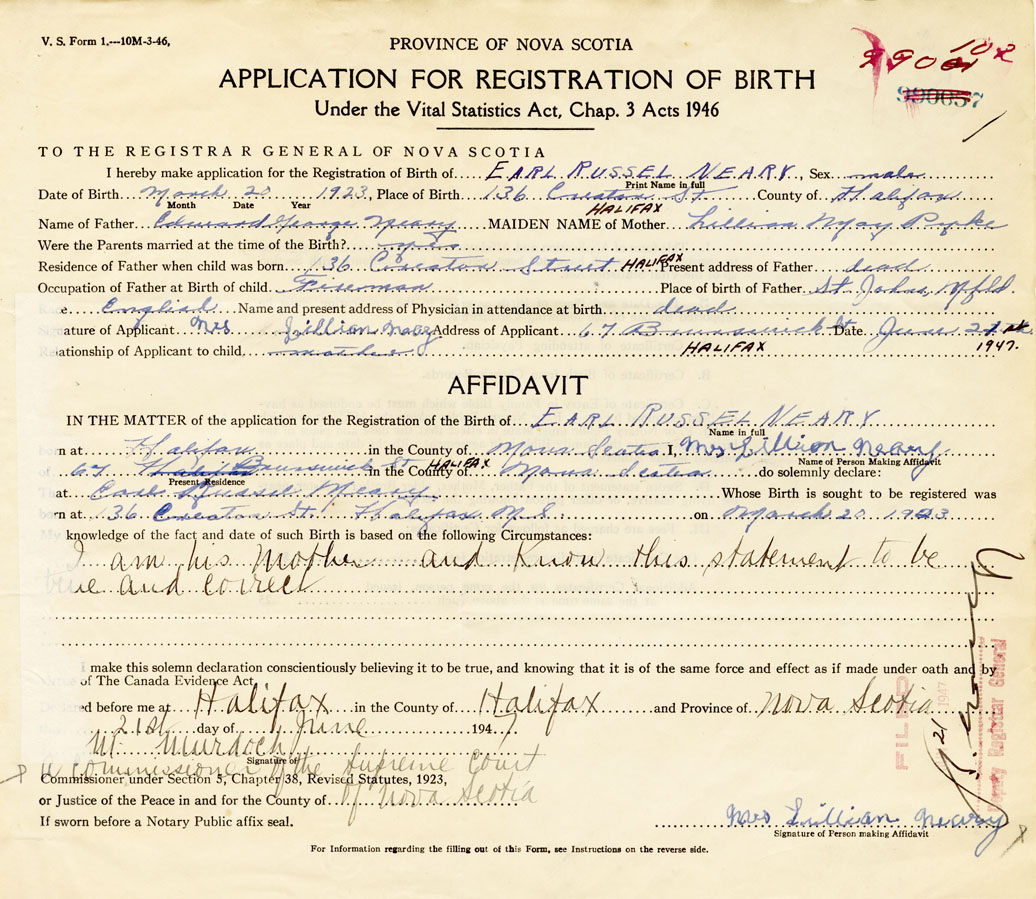 V. S. Form 1.---10M-3-46,
PROVINCE OF NOVA SCOTIA
102
APPLICATION FOR REGISTRATION OF BIRTH
990657
Under the Vital Statistics Act, Chap. 3 Acts 1946
TO THE REGISTRAR GENERAL OF NOVA SCOTIA
I hereby make application for the Registration of Birth of EARL RUSSEL NEARY, Sex male
Print Name in full
Date of Birth March 20 1923, Place of Birth 136 Creaton St County of Halifax
Month Date Year HALIFAX
Name of Father Edward George Neary MAIDEN NAME of Mother Lillian May Pyke
Were the Parents married at the time of the Birth? yes
Residence of Father when child was born 136 Creaton Street HALIFAX Present address of Father dead
Occupation of Father at Birth of child Fireman Place of birth of Father St Johns Nfld.
English Name and present address of Physician in attendance at birth dead
Signature of Applicant Mrs Lillian Neary Address of Applicant 67 Brunswick St Date June 21st
Relationship of Applicant to child mother HALIFAX 1947.
AFFIDAVIT
IN THE MATTER of the application for the Registration of Birth of EARL RUSSEL NEARY
Name in full
born at Halifax in the County of Nova Scotia I, Mrs Lillian Neary
Name of Person Making Affidavit
of 67 Brunswick St HALIFAX in the County of Nova Scotia do solemnly declare:
Present Residence
at Earl Russel Neary Whose Birth is sought to be registered was
born at 136 Creaton St. Halifax N.S. on March 20 1923
My knowledge of the fact and date of such Birth is based on the following Circumstances:
I am his Mother and Know this statement to be
true and correct
I make this solemn declaration conscientiously believing it to be true, and knowing that it is of the same force and effect as if made under oath and by
virtue of The Canada Evidence Act.
Declared before me at Halifax in the County of Halifax and Province of Nova Scotia
this 21st day of June 1947
M. Murdoch
Signature of
a Commissioner of the Supreme Court
Commissioner under Section 5, Chapter 38, Revised Statutes, 1923,
of Nova Scotia
or Justice of the Peace in and for the County of
If sworn before a Notary Public affix seal.
Mrs Lillian Neary
Signature of Person making Affidavit
For Information regarding the filling out of this Form, see Instructions on the reverse side.
FILED
21 1947
Deputy Registrar General